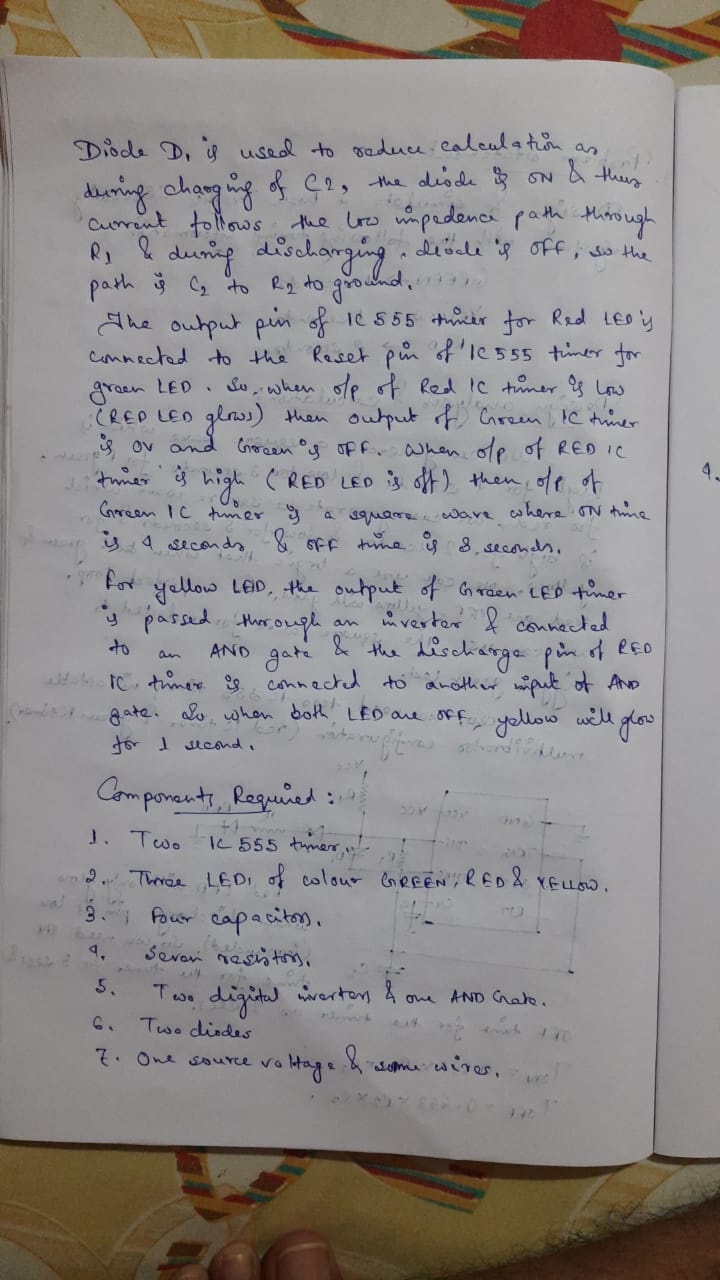 Diode D, is used to reduce calculation as
during charging of C2, the diode is ON & thus
current follows the low impedence path through
R1 & during discharging, diode is OFF, so the
path is C2 to R2 to ground.
The output pin of IC 555 timer for Red LED is
connected to the Reset pin of IC 555 timer for
green LED. So, when o/p of Red IC timer is low
(RED LED glows) then output of Green IC timer
is 0V and Green is OFF. When o/p of RED IC
timer is high (RED LED is off) then o/p of
Green IC timer is a square wave where ON time
is 4 seconds & OFF time is 8 seconds.
For yellow LED, the output of Green LED timer
is passed through an inverter & connected
to an AND gate & the discharge pin of RED
IC timer is connected to another input of AND
gate. So when both LED are OFF, yellow will glow
for 1 second.
Components Required :
1. Two IC 555 timer.
2. Three LEDs of colour GREEN, RED & YELLOW.
3. Four capacitors.
4. Seven resistors.
5. Two digital inverters & one AND Gate.
6. Two diodes
7. One source voltage & some wires.
4.